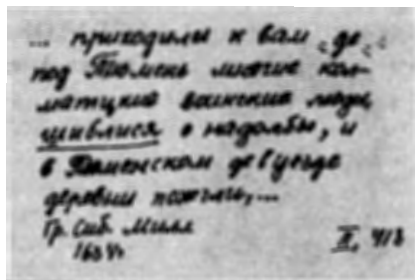 ... приходили к вам де
под Тюмень многие кол-
матцкия воинския люди,
шиблися о надолбы, и
в Тюменском де в уезде
деревни пожгли,...
Гр. Сиб. Милл
II, 413